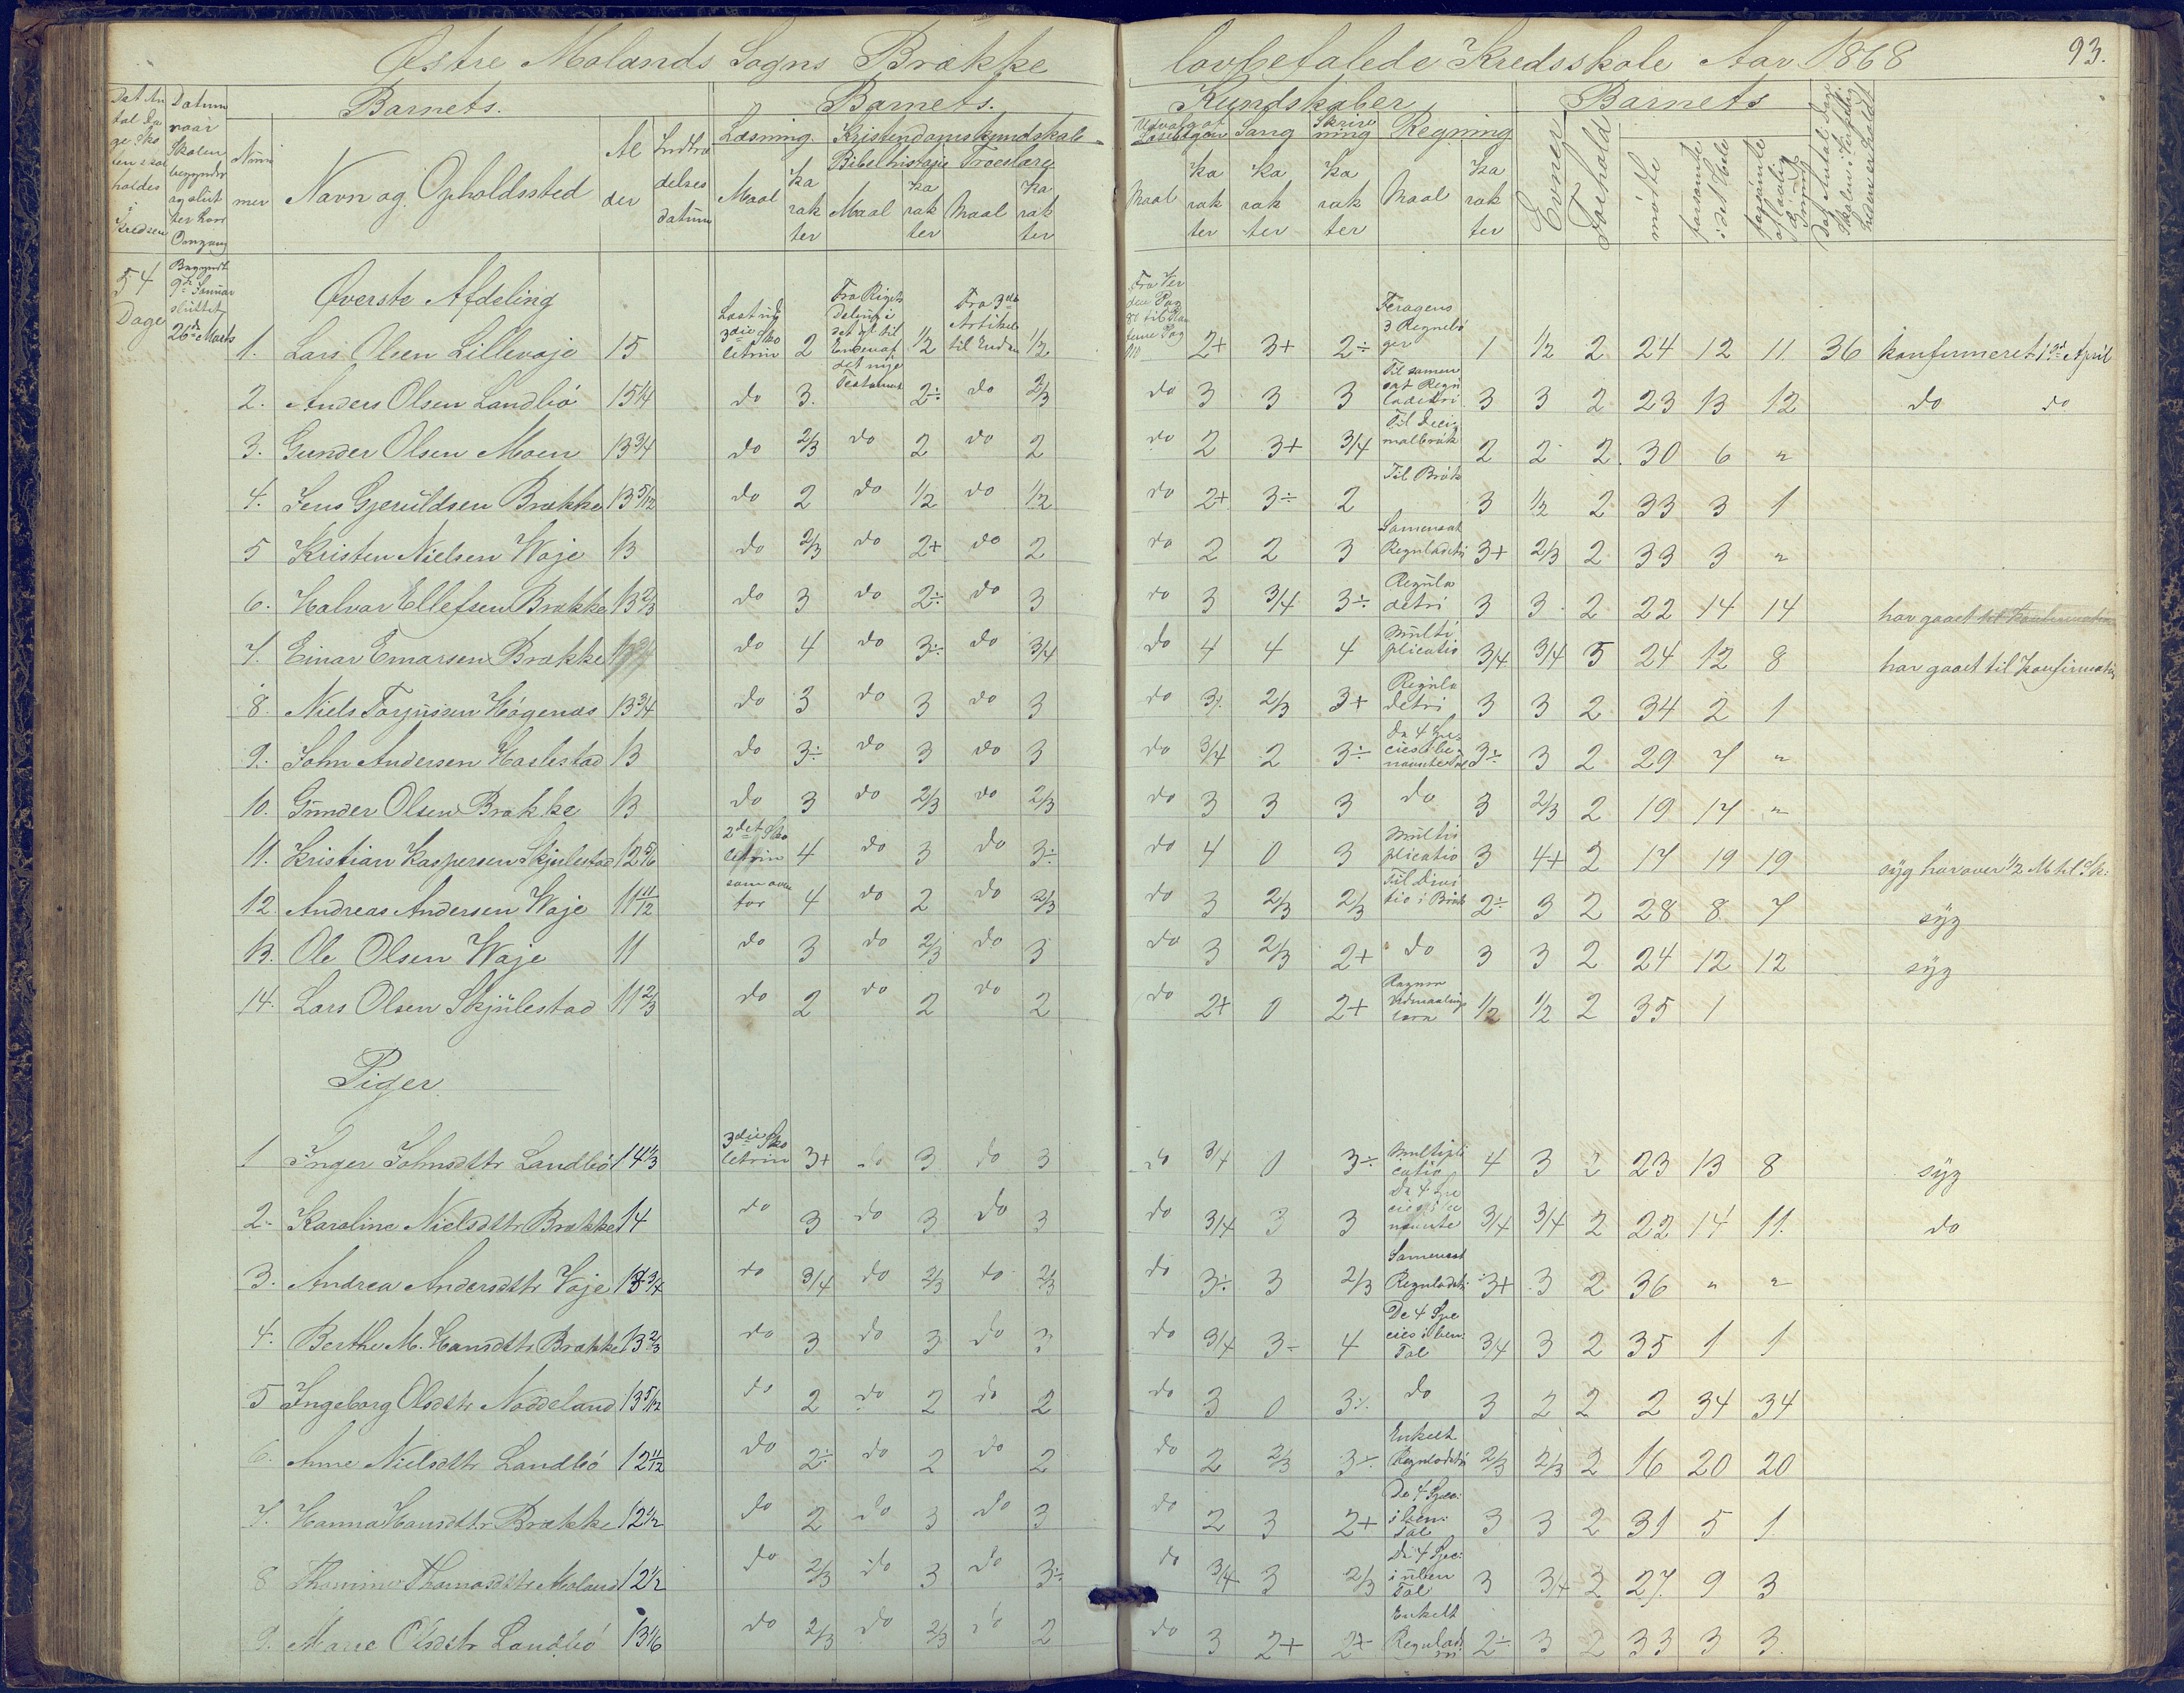 Østre Molands Sogns Brække lovbefalede Kredsskole Aar 1868 93.
Barnets. Barnets. Kundskaber Barnets
Læsning. Kristendomskundskab Udvalg af Læsebogen Sang Skrivning Regning
Bibelhistorie Troeslære
Det Antal Dage Skolen skal holdes i Kredsen
Datum naar Skolen begynder og slutter hver Omgang
Nummer Navn og Opholdssted Alder Indtrædelses datum Maal Karakter Maal Karakter Maal Karakter Maal Karakter Karakter Karakter Maal Karakter Evner Forhold mødte forsømte i det Hele forsømte af lovlig Grund Det Antal Dage Skolen i Virkeligheden er holdt
54 Dage Begyndt 9de Januar sluttet 26de Marts
Øverste Afdeling
1. Lars Olsen Lillevaje 15 Læst i 3die Skoletrin 2 Fra Rigets Deling i det gl. til Enden af det nye Testament 1/2 Fra 3die Artikel til Enden 1/2 2+ 3+ 2÷ Feragens 3 Regnebøger 1 1/2 2 24 12 11 36 konfirmeret 1ste April
2. Anders Olsen Landbø 15 1/4 do 3. 2÷ do 2/3 do 3 3 3 Til samensat Reguladetri 3 3 2 23 13 12 do do
3. Gunder Olsen Moen 13 3/4 do 2/3 do 2 do 2 do 2 3+ 3/4 Til Decimalbrøk 2 2 2. 30 6 "
4. Jens Gjeruldsen Brække 13 5/12 do 2 do 1/2 do 1/2 do 2+ 3÷ 2 Til Brøk 3 1/2 2 33 3 1
5 Kristen Nielsen Waje 13 do 2/3 do 2+ do 2 do 2 2 3 Samensat Reguladetri 3+ 2/3 2 33 3 "
6. Halvor Ellefsen Brække 13 2/3 do 3 do 2÷ do 3 do 3 3/4 3÷ Reguladetri 3 3 2 22 14 14 har gaaet til Konfirmation
7. Einar Emarsen Brække do 4 do 3÷ do 3/4 do 4 4 4 Multiplicatio 3/4 3/4 5 24 12 8 har gaaet til Konfirmation
8. Niels Torjussen Høgenæs 13 3/4 do 3 do 3 do 3 do 3. 2/3 3+ Reguladetri 3 3 2 34 2 1
9. John Andersen Haslestad 13 do 3÷ do 3 do 3 do 3/4 2 3÷ De 4 Species i benævnte Tal 3÷ 3 2 29 7 "
10. Gunder Olsen Brække 13 do 3 do 2/3 do 2/3 do 3 3 3 do 3 2/3 2 19 17 "
11. Kristian Kaspersen Skjulestad 12 5/6 2det Skoletrin 4 do 3 do 3÷ do 4 0 3 Multiplicatio 3 4+ 2 17 19 19 syg har over 1/2 M til Sk:
12 Andreas Andersen Waje 11 11/12 som ovenfor 4 do 2 do 2/3 do 3 2/3 2/3 Til Divitio i Brøk 2÷ 3 2 28 8 7 syg
13. Ole Olsen Waje 11 do 3 do 2/3 do 3 do 3 2/3 2+ do 3 3 2 24 12 12 syg
14. Lars Olsen Skjulestad 11 2/3 do 2 do 2 do 2 do 2+ 0 2+ 1/2 1/2 2 35 1
Piger
1 Inger Johnsdttr Landbø 14 1/3 3die Skoletrin 3+ do 3 do 3 do 3/4 0 3÷ Multiplicatio 4 3 2 23 13 8 syg
2. Karoline Nielsdttr Brække 14 do 3 do 3 do 3 do 3/4 3 3 De 4 Species i benævnte 3/4 3/4 2 22 14 11. do
3. Andrea Andersdttr Vaje 13 3/4 do 3/4 do 2/3 do 2/3 do 3÷ 3 2/3 Samensat Reguladetri 3+ 3 2 36 " "
4. Berthe M. Hansdttr Brække 13 2/3 do 3 do 3 do 3 do 3/4 3÷ 4 De 4 Species i ben: Tal 3/4 3 2 35 1 1
5 Ingeborg Olsdttr Noddeland 13 5/12 do 2 do 2 do 2 do 3 0 3÷ do 3 2 2 2 34 34
6. Anne Nielsdttr Landbø 12 11/12 do 2÷ do 2 do 2 do 2 2/3 3÷ Enkelt Reguladetri 2/3 2/3 2 16 20 20
7. Hanna Hansdttr Brække 12 1/2 do 2 do 3 do 3 do 2 3 2+ De 4 Spec: i ben: Tal 3 3 2 31 5 1
8 Thomine Thomasdttr Moland 12 1/2 do 2/3 do 3 do 3÷ do 3/4 3 2/3 De 4 Spec: i uben Tal 3 3/4 2 27. 9 3
9. Marie Olsdttr Landbø 13 1/6 do 2/3 do 2/3 do 2 do 3 2+ 2+ Enkelt Reguladetri 2÷ 3 2 33 3 3.